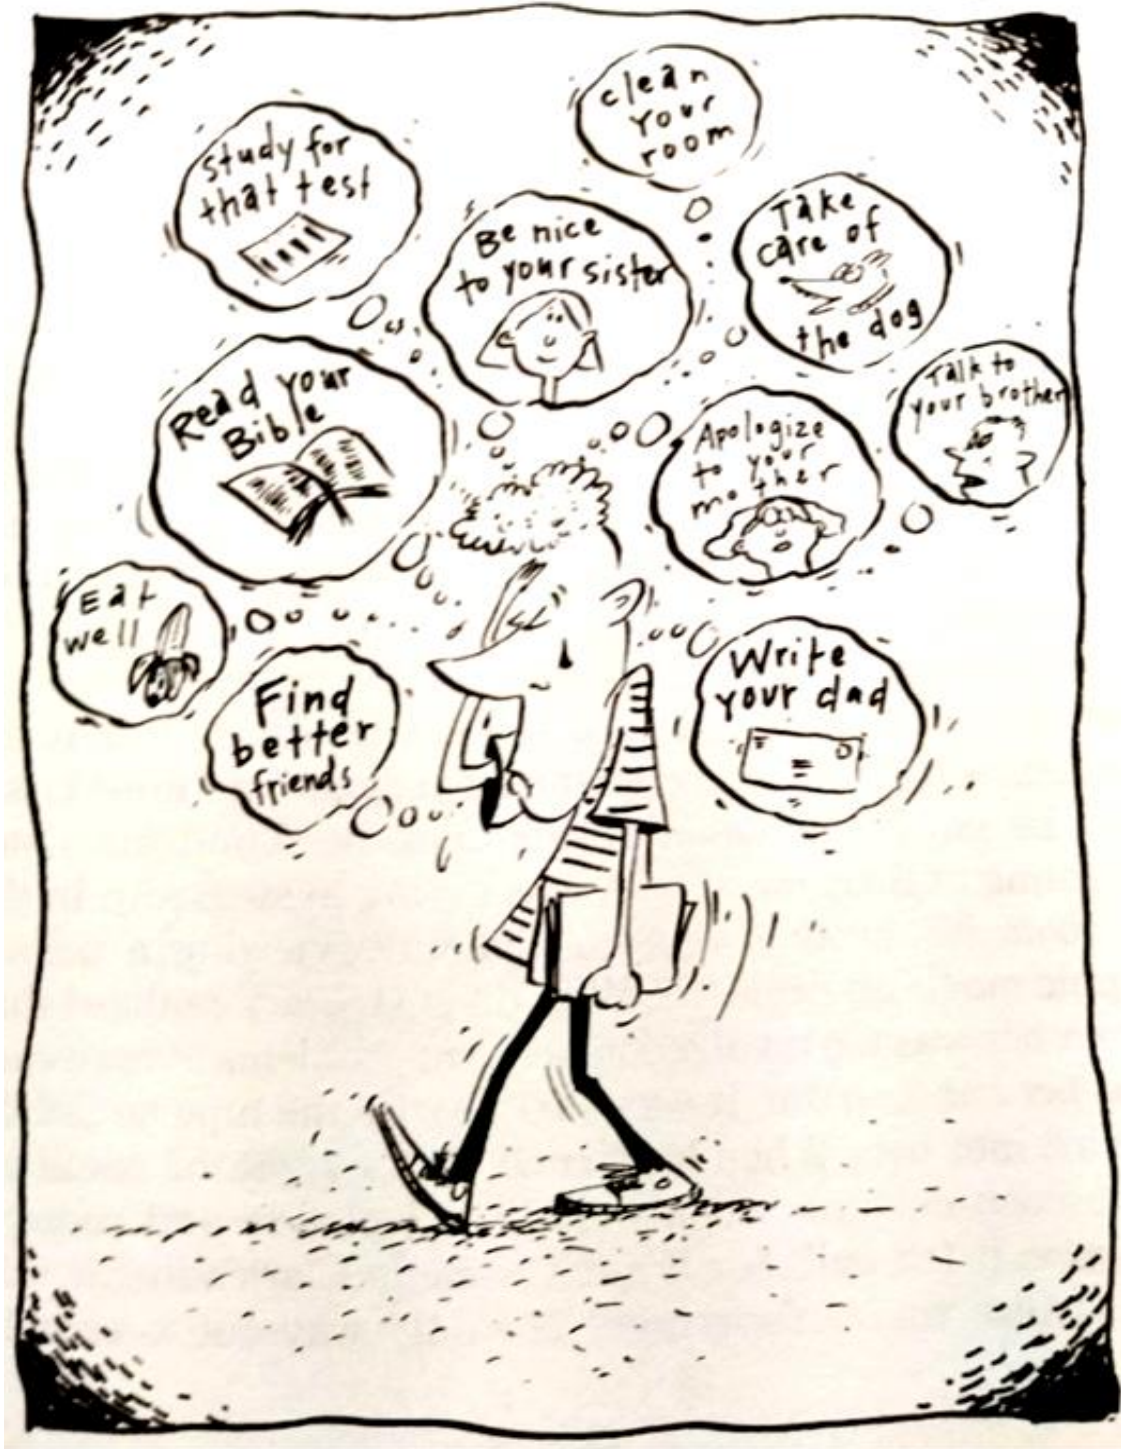 clean
your
room
study for
that test
Be nice
to your sister
Take
care of
the dog
Read your
Bible
Talk to
your brother
Apologize
to your
mother
Eat
well
Find
better
friends
Write
your dad